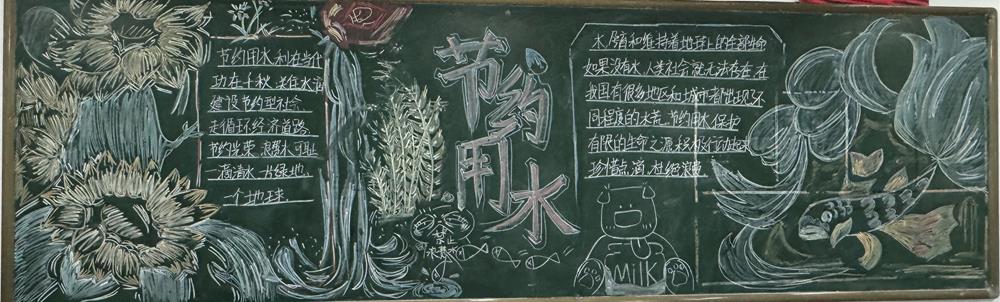 节约用水利在当代
功在千秋 关住水滴
建设节约型社会
走循环经济道路
节约光荣 浪费水可耻
一滴清水 一片绿地
一个地球
节约用水
禁止
水孕育和维持着地球上的全部生命
如果没有水 人类社会就无法存在 在
我国有很多地区和城市都出现不
同程度的水荒 节约用水 保护
有限的生命之源 积极行动起来
珍惜点滴 杜绝浪费
MiLK